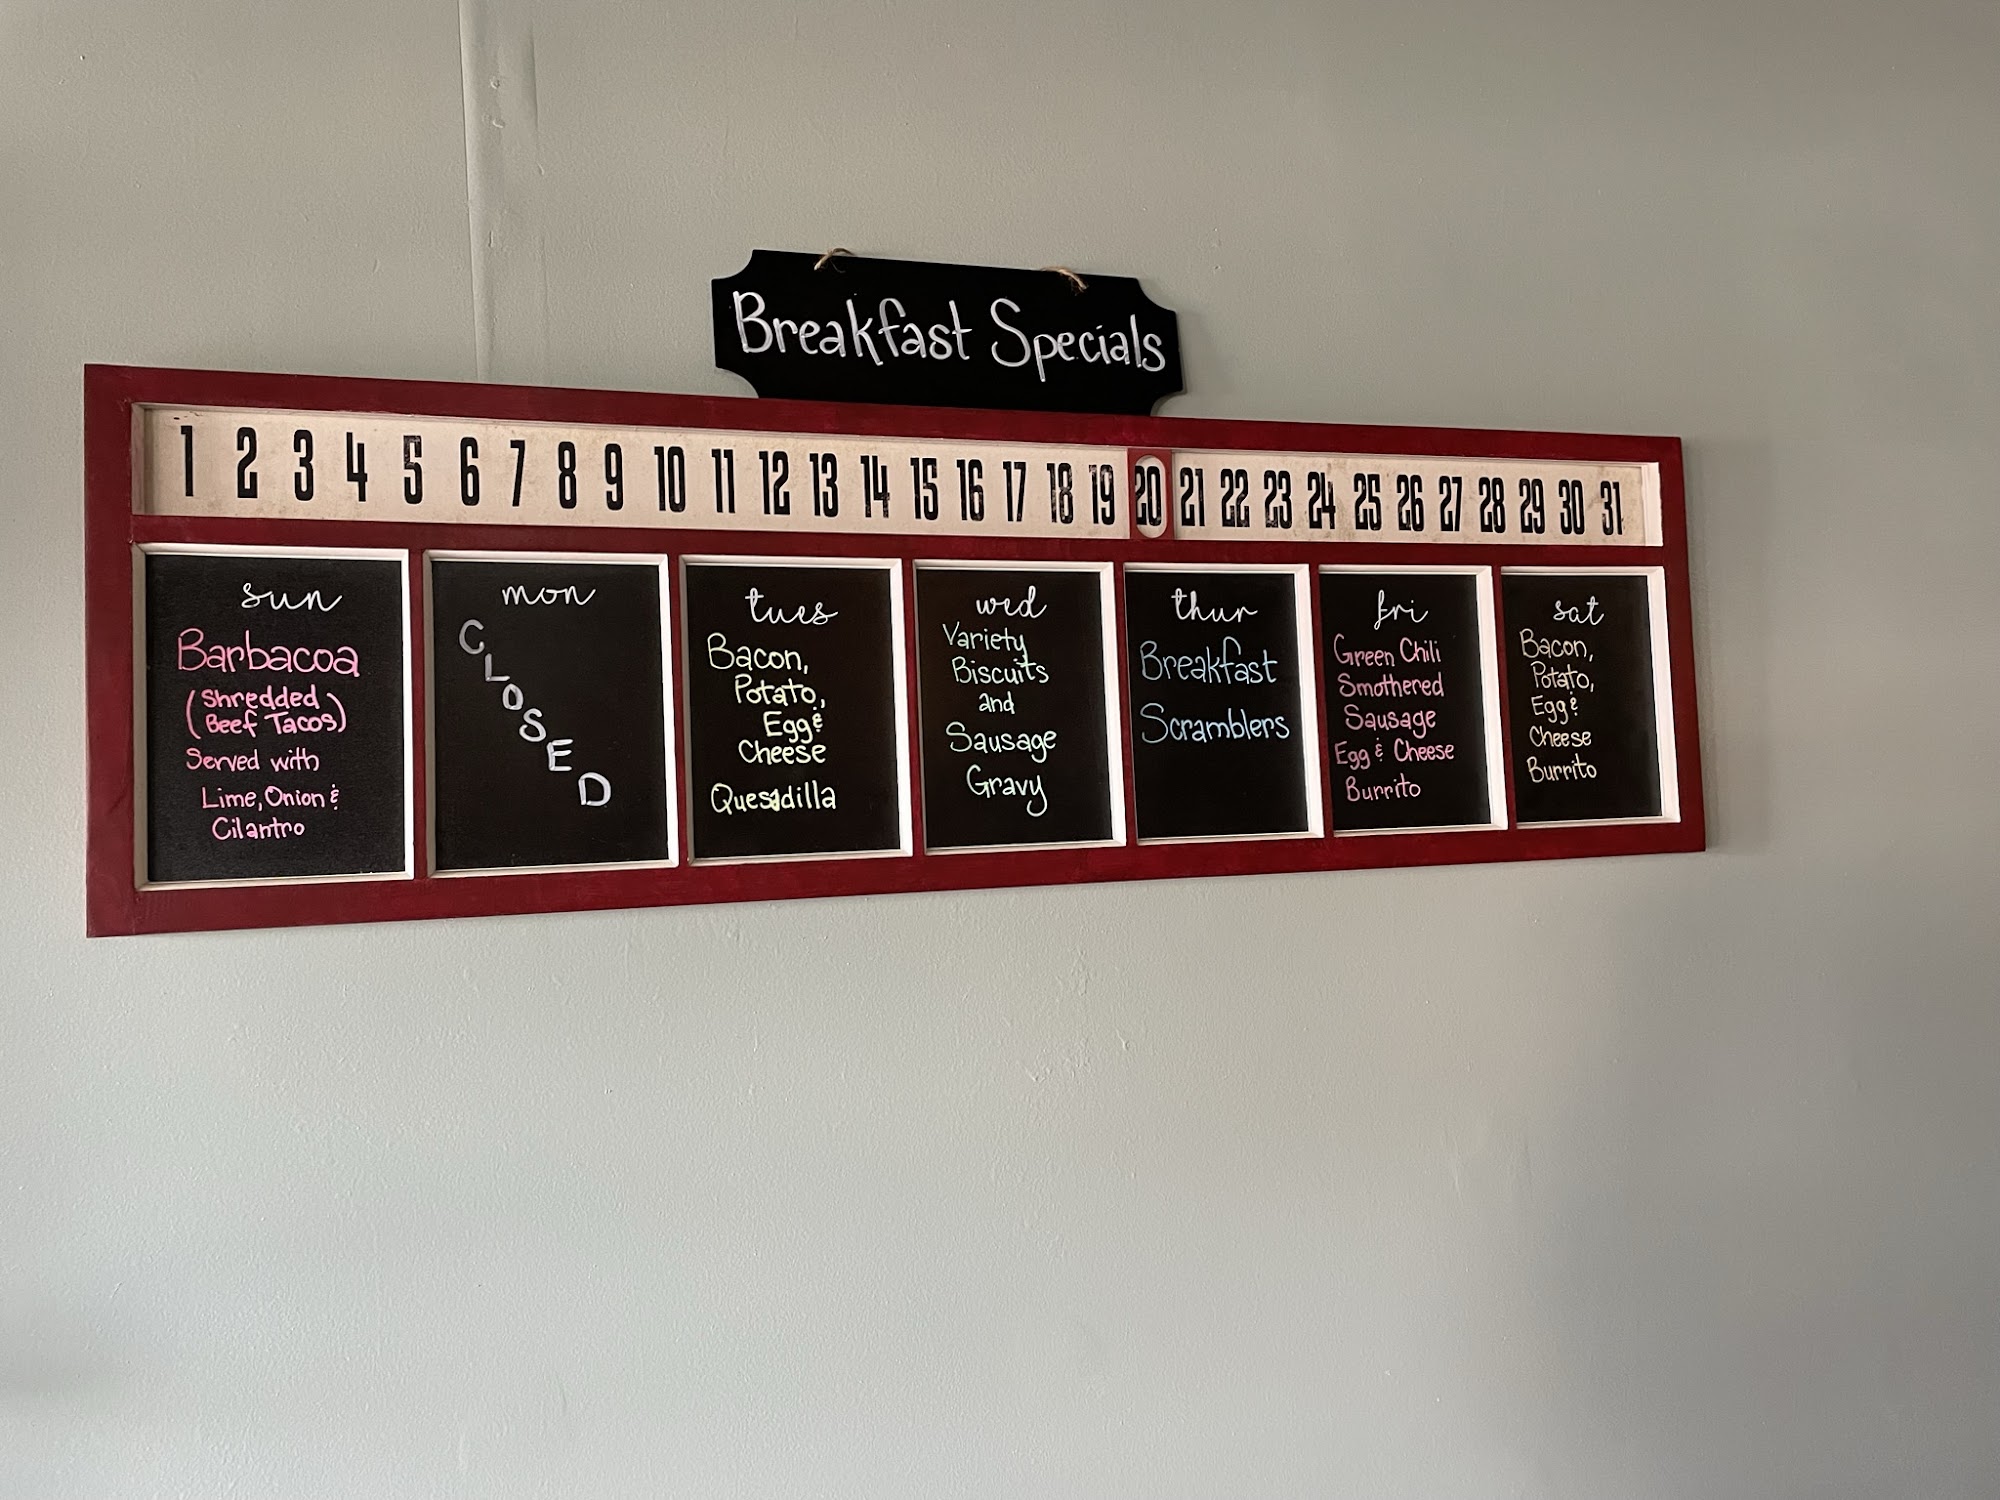 Breakfast Specials
1 2 3 4 5 6 7 8 9 10 11 12 13 14 15 16 17 18 19 20 21 22 23 24 25 26 27 28 29 30 31
sun
Barbacoa
(Shredded
Beef Tacos)
Served with
Lime, Onion &
Cilantro
mon
CLOSED
tues
Bacon,
Potato,
Egg &
Cheese
Quesadilla
wed
Variety
Biscuits
and
Sausage
Gravy
thur
Breakfast
Scramblers
fri
Green Chili
Smothered
Sausage
Egg & Cheese
Burrito
sat
Bacon,
Potato,
Egg &
Cheese
Burrito